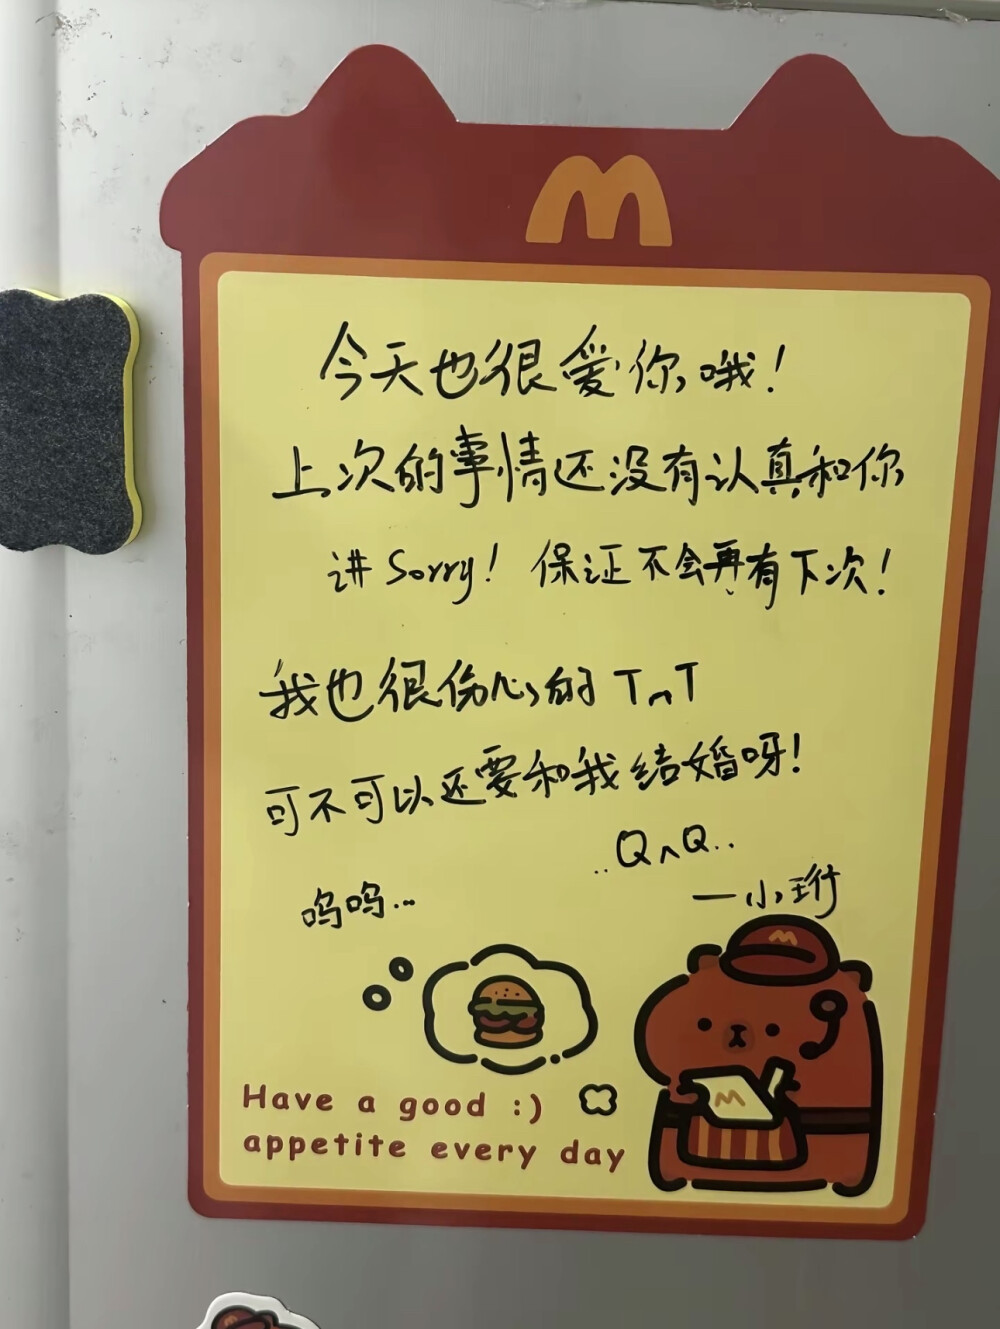 M
今天也很爱你哦!
上次的事情还没有认真和你
讲Sorry! 保证不会再有下次!
我也很伤心的 TnT
可不可以还要和我结婚呀!
..Q∧Q..
呜呜...
—小珩
Have a good :)
appetite every day